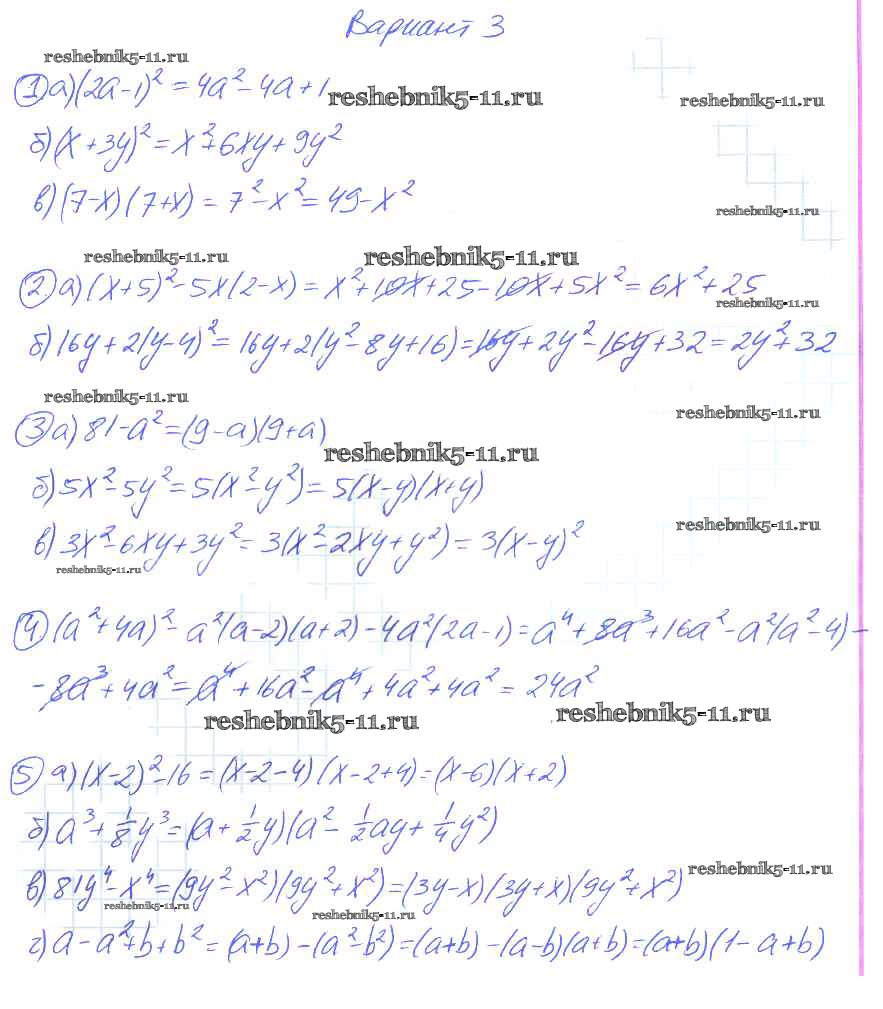 Вариант 3
reshebnik5-11.ru
① а) (2a-1)² = 4a² - 4a + 1
reshebnik5-11.ru
reshebnik5-11.ru
б) (x + 3y)² = x² + 6xy + 9y²
в) (7-x)(7+x) = 7² - x² = 49 - x²
reshebnik5-11.ru
reshebnik5-11.ru
reshebnik5-11.ru
② а) (x+5)² - 5x(2-x) = x² + 10x + 25 - 10x + 5x² = 6x² + 25
reshebnik5-11.ru
б) 16y + 2(y-4)² = 16y + 2(y² - 8y + 16) = 16y + 2y² - 16y + 32 = 2y² + 32
reshebnik5-11.ru
reshebnik5-11.ru
③ а) 81 - a² = (9-a)(9+a)
reshebnik5-11.ru
б) 5x² - 5y² = 5(x² - y²) = 5(x-y)(x+y)
reshebnik5-11.ru
в) 3x² - 6xy + 3y² = 3(x² - 2xy + y²) = 3(x-y)²
reshebnik5-11.ru
④ (a² + 4a)² - a²(a-2)(a+2) - 4a²(2a-1) = a⁴ + 8a³ + 16a² - a²(a² - 4) -
- 8a³ + 4a² = a⁴ + 16a² - a⁴ + 4a² + 4a² = 24a²
reshebnik5-11.ru
reshebnik5-11.ru
⑤ а) (x-2)² - 16 = (x-2-4)(x-2+4) = (x-6)(x+2)
б) a³ + 1/8 y³ = (a + 1/2 y)(a² - 1/2 ay + 1/4 y²)
reshebnik5-11.ru
в) 81y⁴ - x⁴ = (9y² - x²)(9y² + x²) = (3y-x)(3y+x)(9y² + x²)
reshebnik5-11.ru
reshebnik5-11.ru
г) a - a² + b + b² = (a+b) - (a² - b²) = (a+b) - (a-b)(a+b) = (a+b)(1 - a + b)